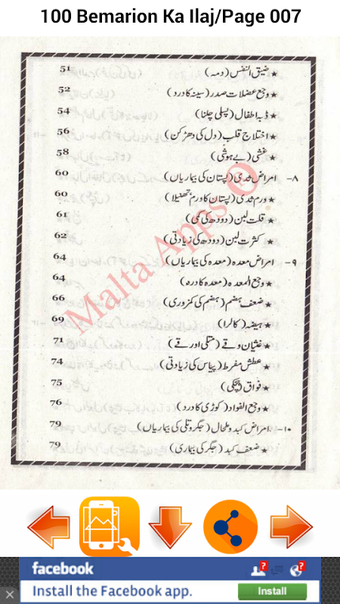 100 Bemarion Ka Ilaj/Page 007
★ ضیق النفس (دمہ) 51
★ وجع عضلات صدر (سینہ کا درد) 52
★ ڈبہ اطفال (پسلی چلنا) 54
★ اختلاج قلب (دل کی دھڑکن) 56
★ غشی (بے ہوشی) 58
۸- امراض ثدی (پستان کی بیماریاں) 60
★ ورم ثدی (پستان کا ورم تھنیلا) 60
★ قلت لبن (دودھ کی کمی) 61
★ کثرت لبن (دودھ کی زیادتی) 62
۹- امراض معدہ (معدہ کی بیماریاں) 64
★ وجع المعدہ (معدہ کا درد) 64
★ ضعف ہضم (ہضم کی کمزوری) 66
★ ہیضہ (کالرا) 69
★ غثیان و قے (متلی اور قے) 71
★ عطش مفرط (پیاس کی زیادتی) 74
★ فواق (ہچکی) 75
★ وجع الفواد (کوڑی کا درد) 76
۱۰- امراض کبد و طحال (جگر و تلی کی بیماریاں) 79
★ ضعف کبد (جگر کی بیماری) 79
Malta Apps
facebook
Install the Facebook app.
Install